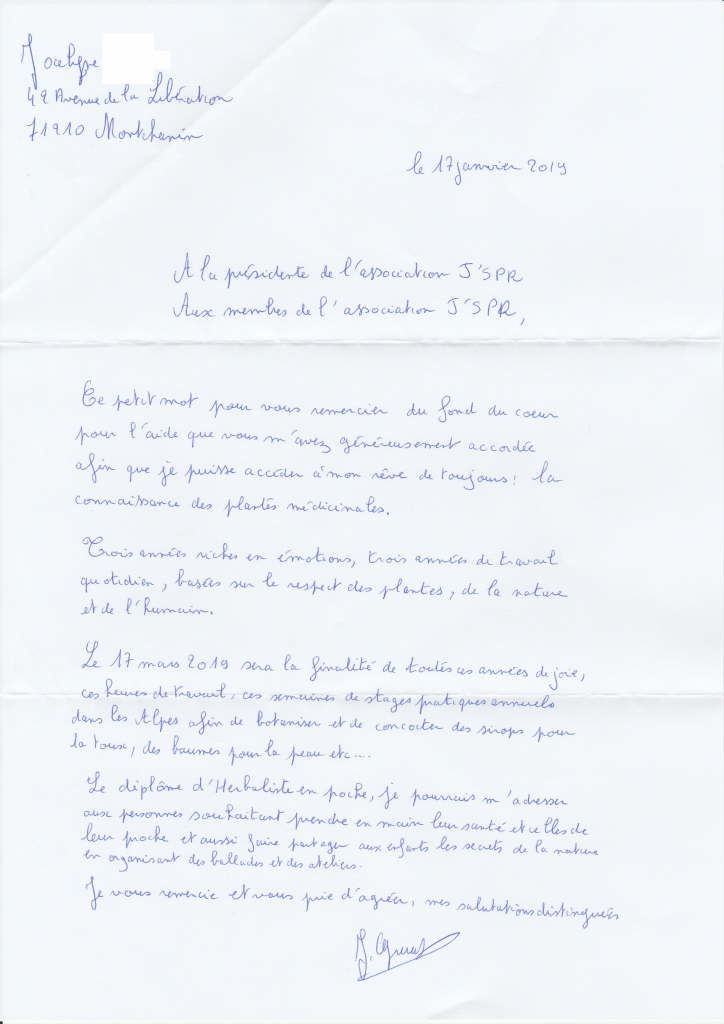 Jocelyne
42 Avenue de la Libération
71910 Montchanin
le 17 janvier 2019
A la présidente de l'association J'SPR
Aux membres de l'association J'SPR,
Ce petit mot pour vous remercier du fond du coeur
pour l'aide que vous m'avez généreusement accordée
afin que je puisse accéder à mon rêve de toujours : la
connaissance des plantes médicinales.
Trois années riches en émotions, trois années de travail
quotidien, basées sur le respect des plantes, de la nature
et de l'humain.
Le 17 mars 2019 sera la finalité de toutes ces années de joie,
ces heures de travail, ces semaines de stages pratiques annuels
dans les Alpes afin de botaniser et de concocter des sirops pour
la toux, des baumes pour la peau etc....
Le diplôme d'Herbaliste en poche, je pourrais m'adresser
aux personnes souhaitant prendre en main leur santé et celles de
leur proche et aussi faire partager aux enfants les secrets de la nature
en organisant des ballades et des ateliers.
Je vous remercie et vous prie d'agréer, mes salutations distinguées
J.